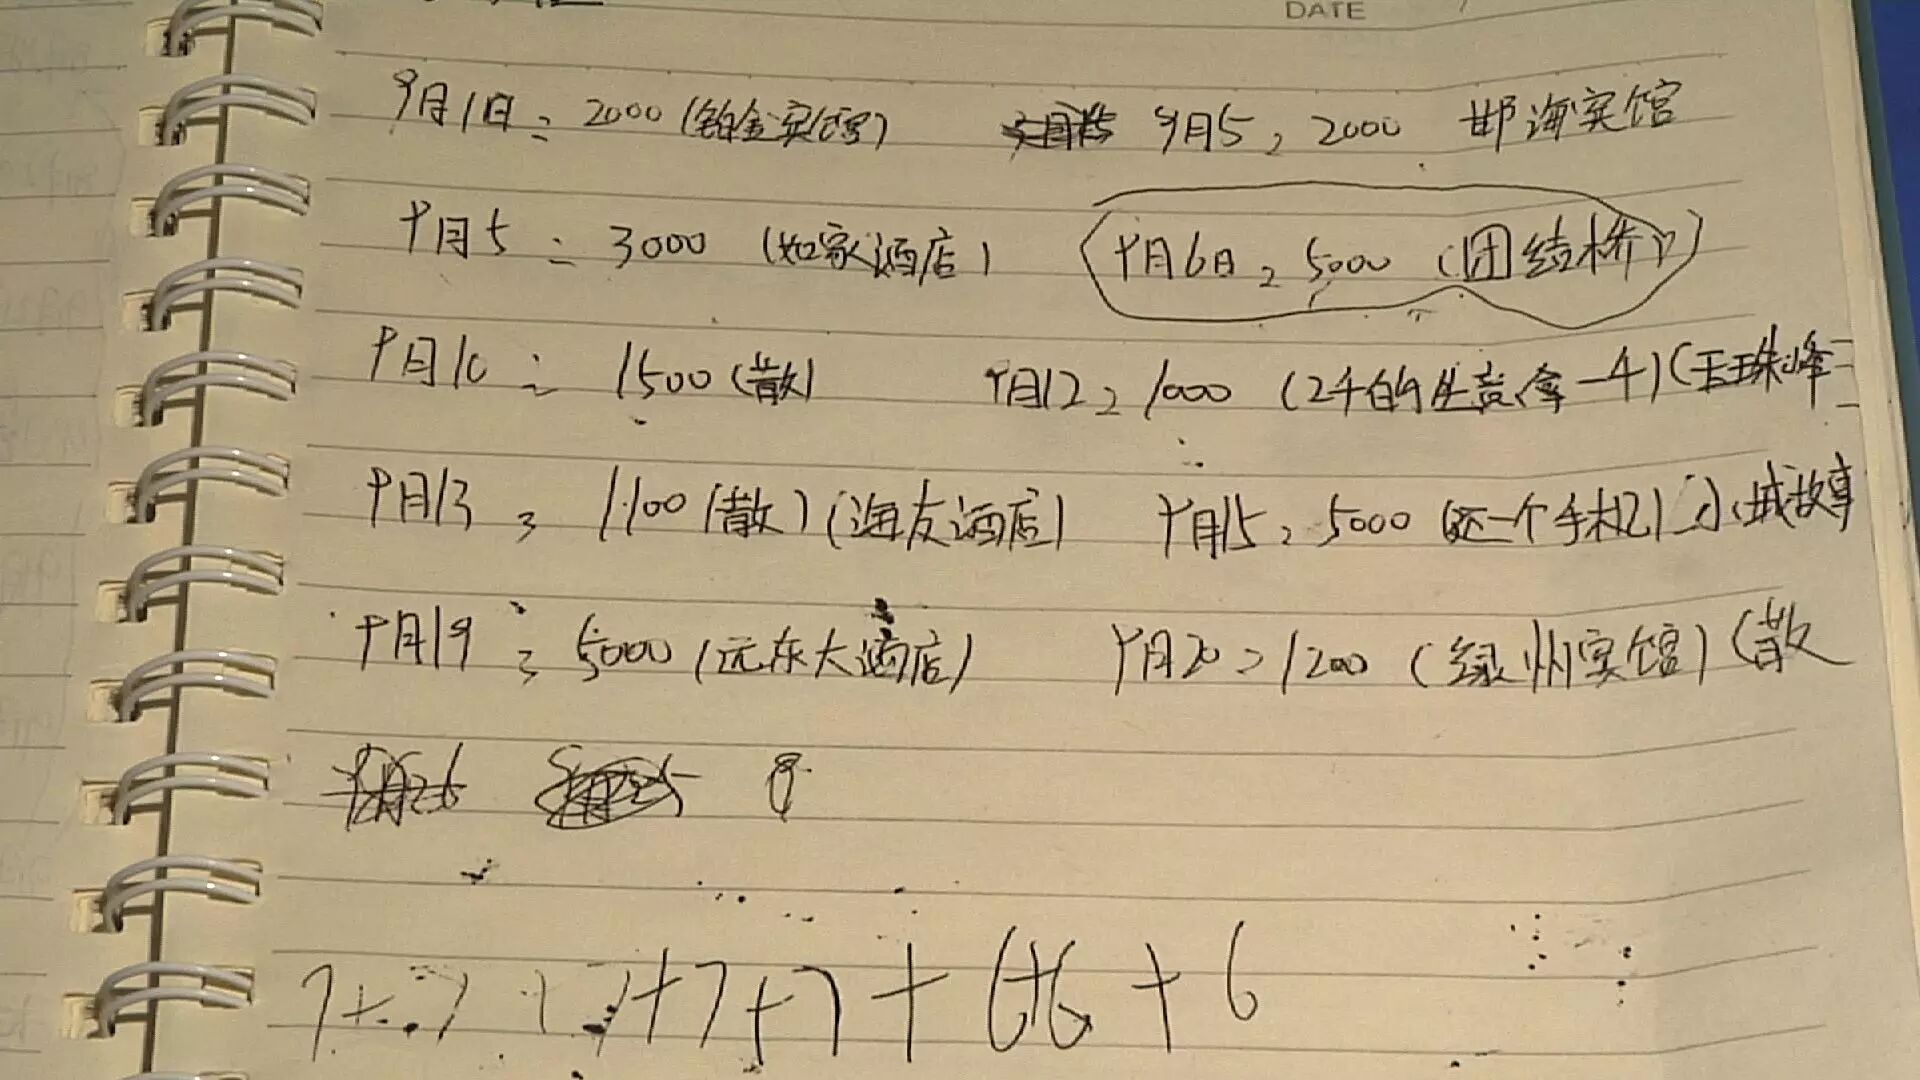 DATE
9月1日: 2000 (铂金宾馆) 9月5: 2000 邯海宾馆
9月5: 3000 (如家酒店) 9月6日: 5000 (团结桥)
9月10: 1500 (散) 9月12: 1000 (2千的生意拿一千) (玉珠峰
9月13: 1100 (散) (海友酒店) 9月15: 5000 (还一个手机) 小城故事
9月19: 5000 (远东大酒店) 9月20: 1200 (绿州宾馆) (散
7+7+7+7+7+6+6+6